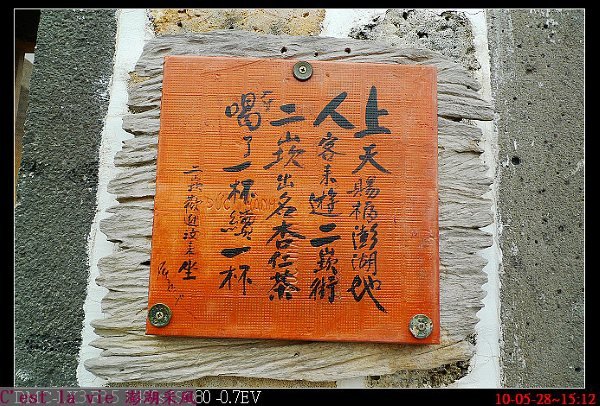 上天賜福澎湖地
人客来遊二崁街
二崁出名杏仁茶
喝了一杯續一杯
二崁歡迎汝来坐
C'est la vie 澎湖采風
80 -0.7EV
10-05-28~15:12